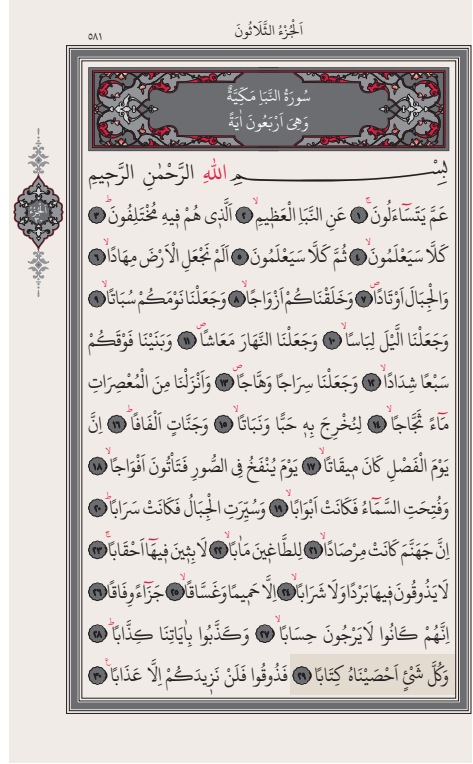 اَلْجُزْءُ الثَّلَاثُونَ
٥٨١
سُورَةُ النَّبَأِ مَكِّيَّةٌ
وَهِيَ اَرْبَعُونَ اٰيَةً
بِسْمِ اللّٰهِ الرَّحْمٰنِ الرَّح۪يمِ
عَمَّ يَتَسَٓاءَلُونَۚ ﴿١﴾ عَنِ النَّبَأِ الْعَظ۪يمِۙ ﴿٢﴾ اَلَّذ۪ي هُمْ ف۪يهِ مُخْتَلِفُونَۜ ﴿٣﴾
كَلَّا سَيَعْلَمُونَۙ ﴿٤﴾ ثُمَّ كَلَّا سَيَعْلَمُونَ ﴿٥﴾ اَلَمْ نَجْعَلِ الْاَرْضَ مِهَادًاۙ ﴿٦﴾
وَالْجِبَالَ اَوْتَادًاۖ ﴿٧﴾ وَخَلَقْنَاكُمْ اَزْوَاجًاۙ ﴿٨﴾ وَجَعَلْنَا نَوْمَكُمْ سُبَاتًاۙ ﴿٩﴾
وَجَعَلْنَا الَّيْلَ لِبَاسًاۙ ﴿١٠﴾ وَجَعَلْنَا النَّهَارَ مَعَاشًاۖ ﴿١١﴾ وَبَنَيْنَا فَوْقَكُمْ
سَبْعًا شِدَادًاۙ ﴿١٢﴾ وَجَعَلْنَا سِرَاجًا وَهَّاجًاۖ ﴿١٣﴾ وَاَنْزَلْنَا مِنَ الْمُعْصِرَاتِ
مَٓاءً ثَجَّاجًاۙ ﴿١٤﴾ لِنُخْرِجَ بِه۪ حَبًّا وَنَبَاتًاۙ ﴿١٥﴾ وَجَنَّاتٍ اَلْفَافًاۜ ﴿١٦﴾ اِنَّ
يَوْمَ الْفَصْلِ كَانَ م۪يقَاتًاۙ ﴿١٧﴾ يَوْمَ يُنْفَخُ فِي الصُّورِ فَتَأْتُونَ اَفْوَاجًاۙ ﴿١٨﴾
وَفُتِحَتِ السَّمَٓاءُ فَكَانَتْ اَبْوَابًاۙ ﴿١٩﴾ وَسُيِّرَتِ الْجِبَالُ فَكَانَتْ سَرَابًاۜ ﴿٢٠﴾
اِنَّ جَهَنَّمَ كَانَتْ مِرْصَادًاۙ ﴿٢١﴾ لِلطَّاغ۪ينَ مَاٰبًاۙ ﴿٢٢﴾ لَابِث۪ينَ ف۪يهَٓا اَحْقَابًاۚ ﴿٢٣﴾
لَا يَذُوقُونَ ف۪يهَا بَرْدًا وَلَا شَرَابًاۙ ﴿٢٤﴾ اِلَّا حَم۪يمًا وَغَسَّاقًاۙ ﴿٢٥﴾ جَزَٓاءً وِفَاقًاۜ ﴿٢٦﴾
اِنَّهُمْ كَانُوا لَا يَرْجُونَ حِسَابًاۙ ﴿٢٧﴾ وَكَذَّبُوا بِاٰيَاتِنَا كِذَّابًاۜ ﴿٢٨﴾
وَكُلَّ شَيْءٍ اَحْصَيْنَاهُ كِتَابًاۙ ﴿٢٩﴾ فَذُوقُوا فَلَنْ نَز۪يدَكُمْ اِلَّا عَذَابًاۚ ﴿٣٠﴾